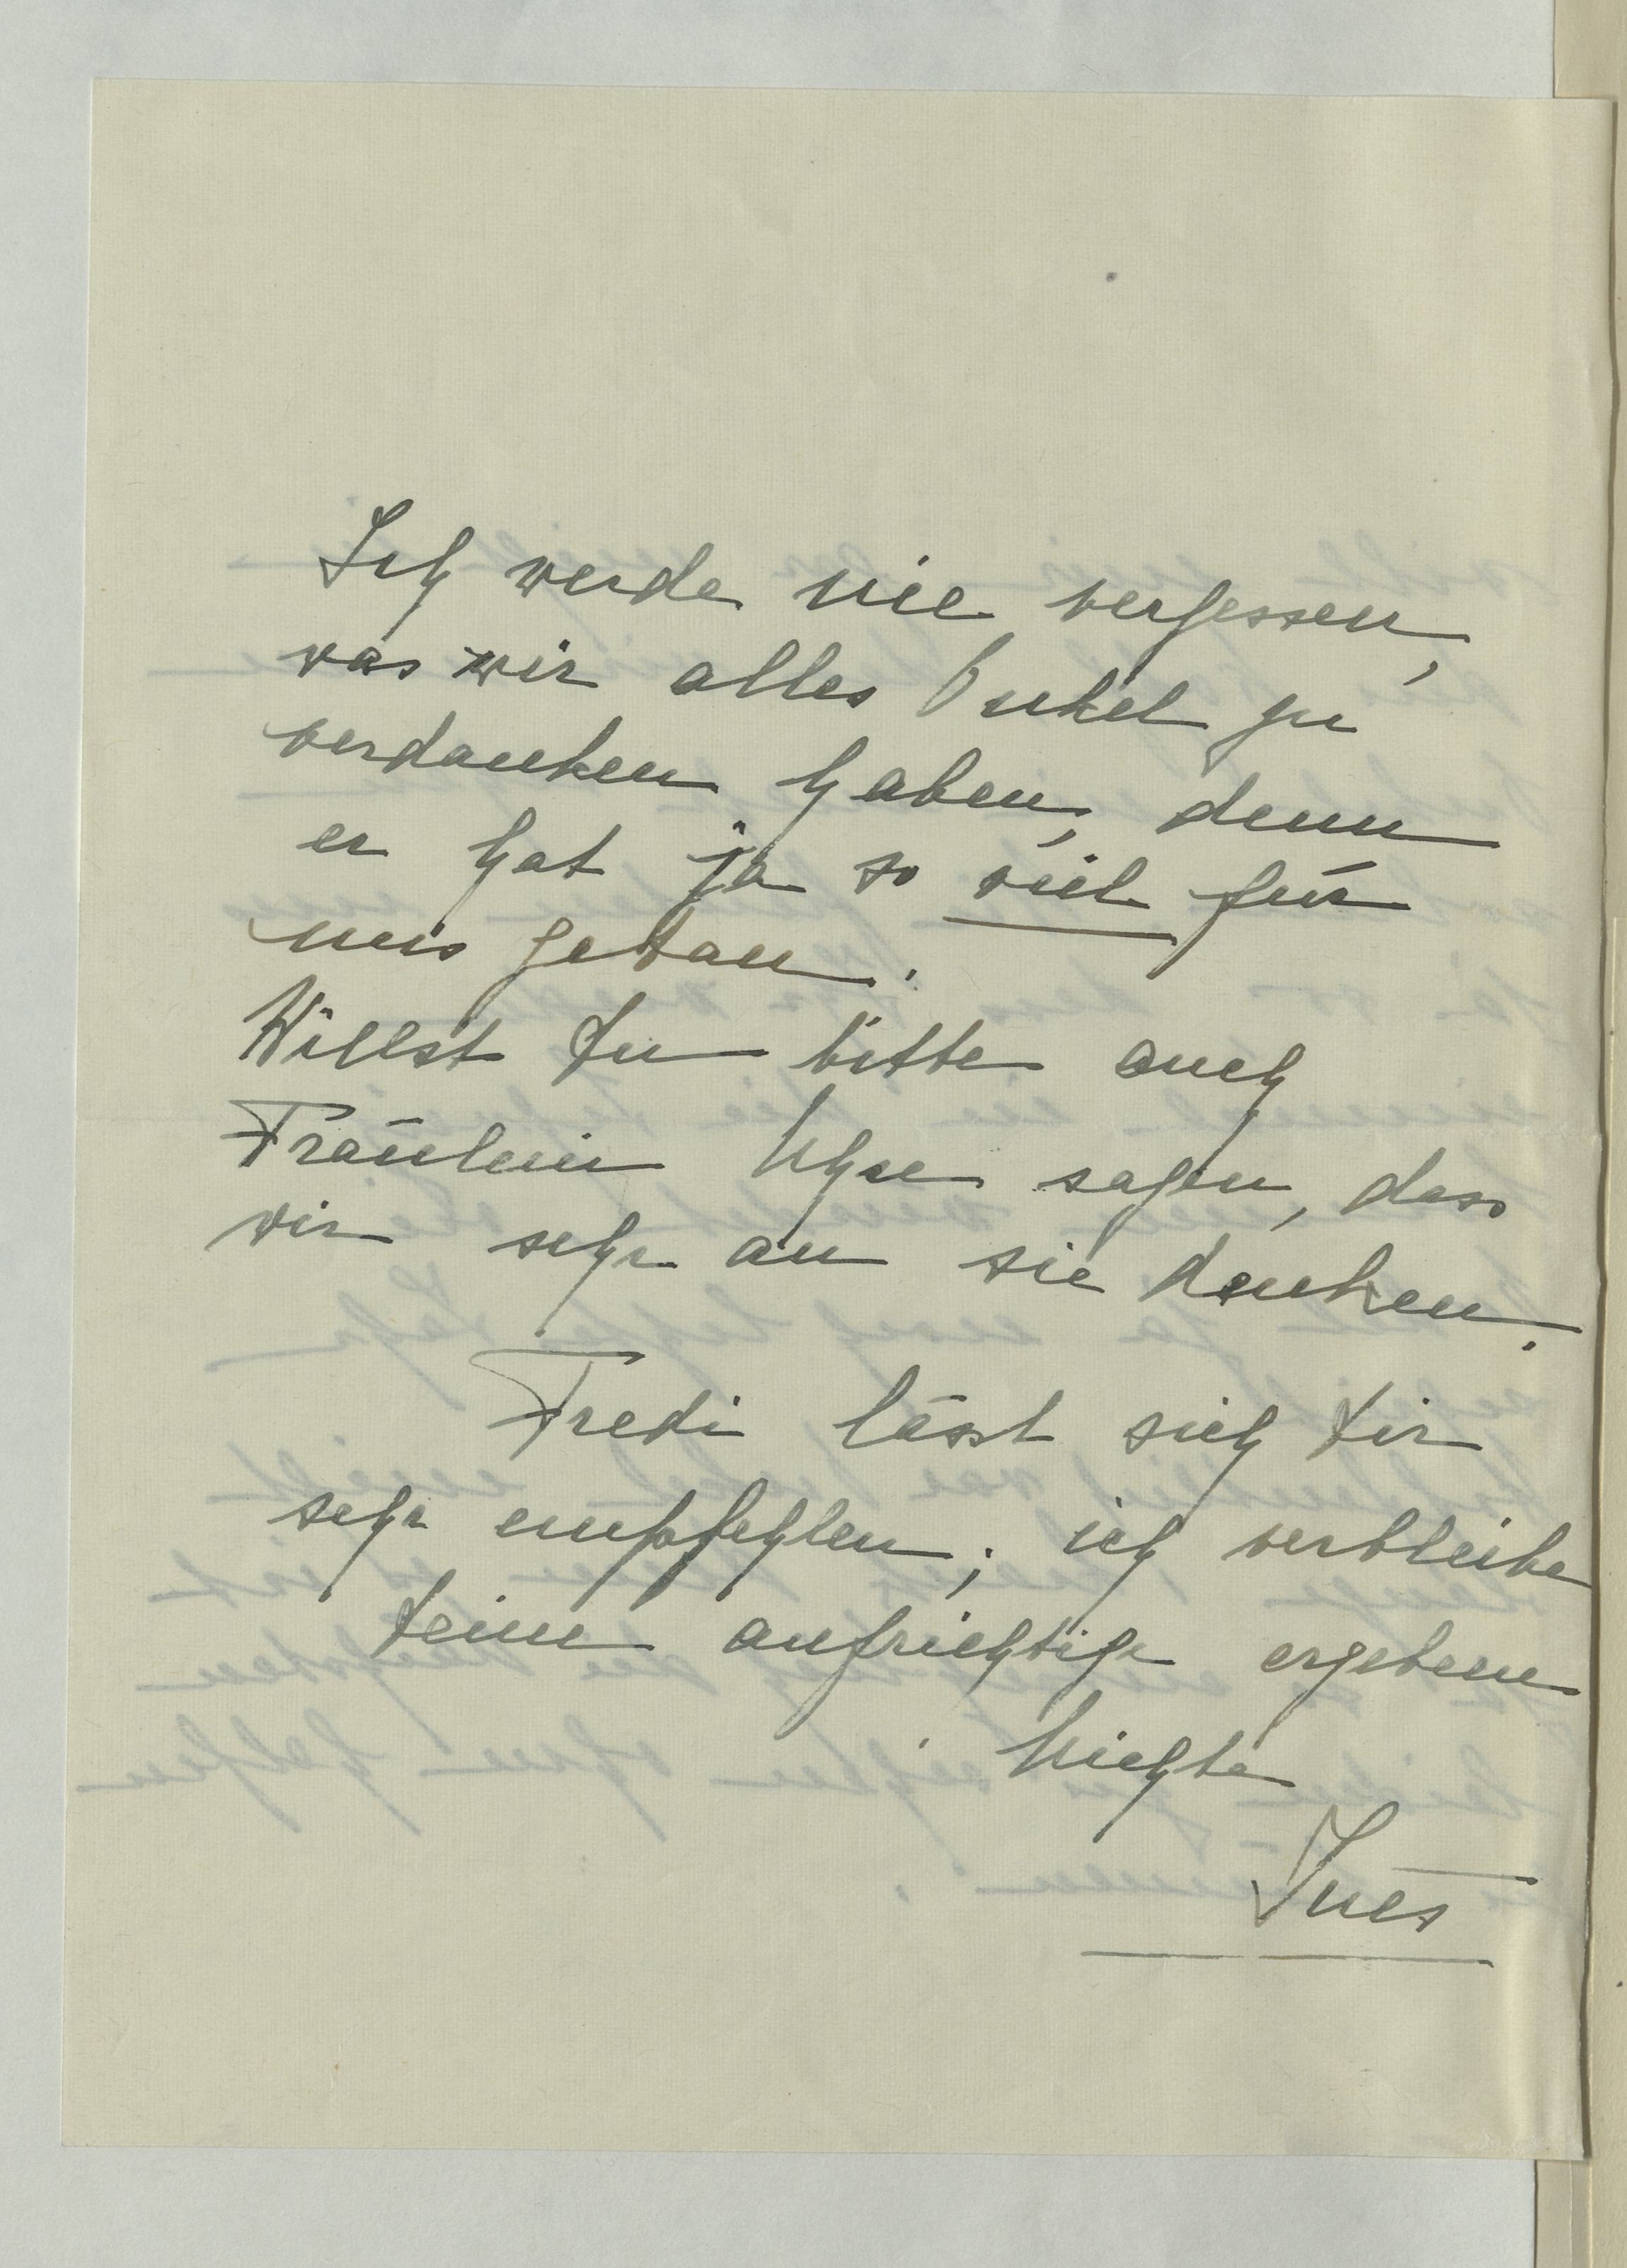 Ich werde nie vergessen,
was wir alles Onkel zu
verdanken haben, denn
er hat ja so viel für
uns getan.
Willst Du bitte auch
Fräulein sagen, dass
wir sehr an sie denken.
Fredi lässt sich Dir
sehr empfehlen; ich verbleibe
Deine aufrichtige ergebene
Nichte
Ines